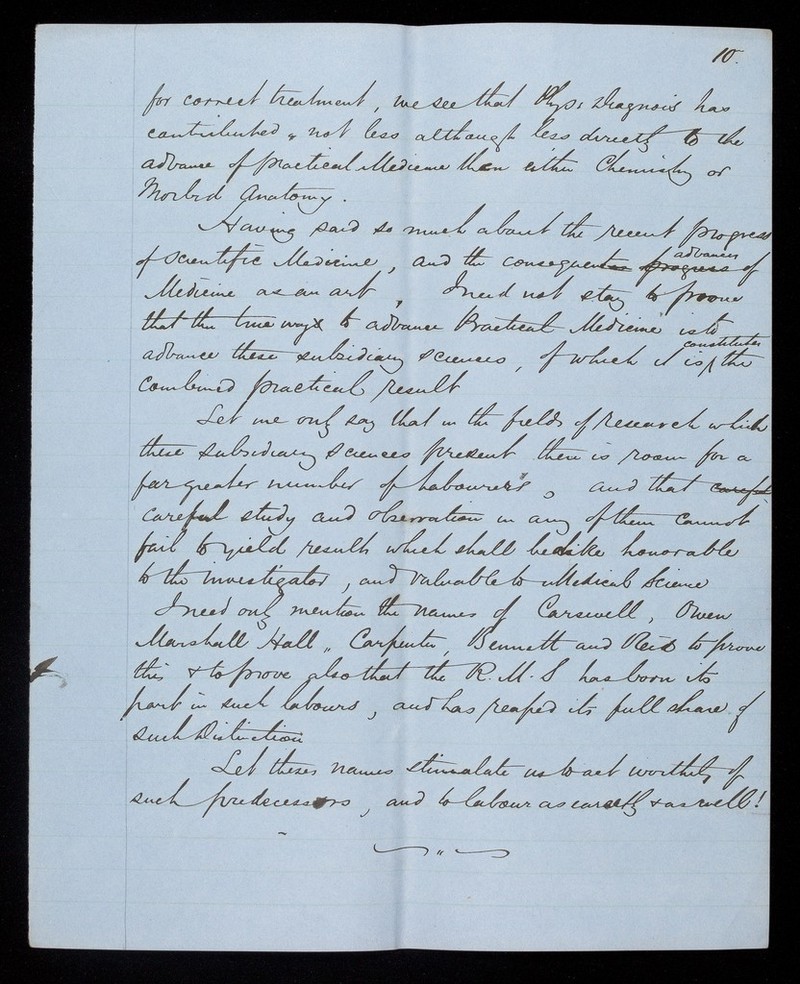 10.
for correct treatment, we see that Phys: Diagnosis has
contributed, not less although less directly to the
advance of practical Medicine than either Chemistry or
Morbid Anatomy.
Having said so much about the recent progress
of Scientific Medicine, and the consequent progress advances of
Medicine as an art, I need not stay to prove
that the true way to advance Practical Medicine is to
advance these subsidiary sciences, of which it is constitutes the
combined practical result
Let me only say that in the fields of research which
these subsidiary sciences present there is room for a
far greater number of labourers, and that careful
careful study and observation in any of them cannot
fail to yield results which shall be alike honorable
to the investigator, and valuable to Medical Science
I need only mention the names of Carswell, Owen
Marshall Hall, Carpenter, Bennett and Reid to prove
this & to prove also that the R. M. S has born its
part in such labours, and has reaped its full share of
such Distinction
Let these names stimulate us to act worthily of
such predecessors, and to labour as earnestly & as well!